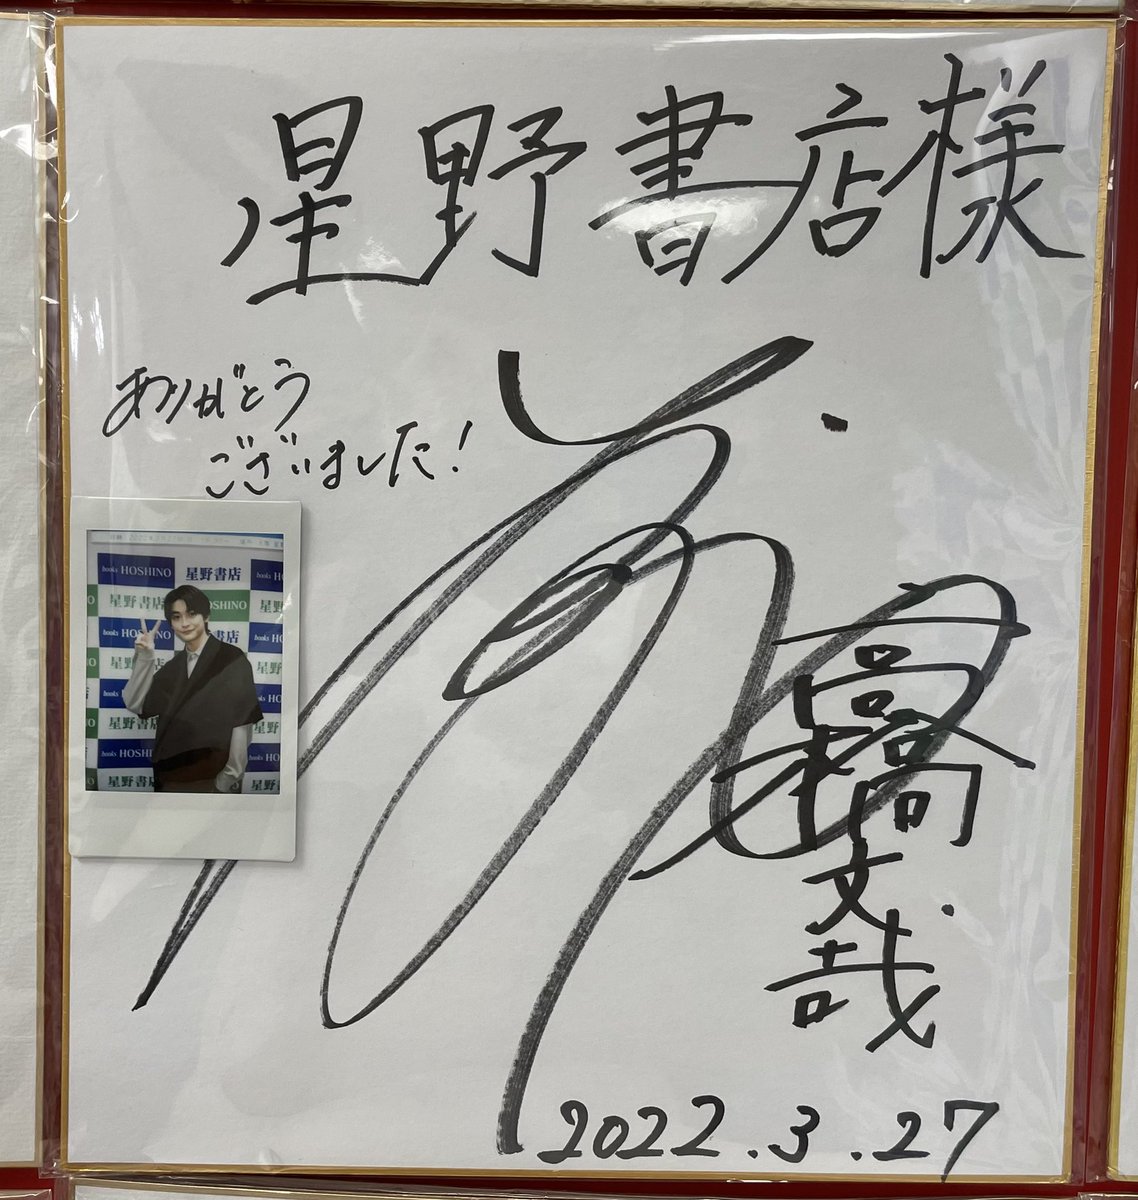 星野書店様
ありがとう
ございました!
髙橋文哉
2022.3.27
books HOSHINO 星野書店 books HO
星野書店 HOSHINO 星野
books HOSHINO 書店 books HO
星野
books 星野
星野書店
books HOSHINO
星野書店 星野